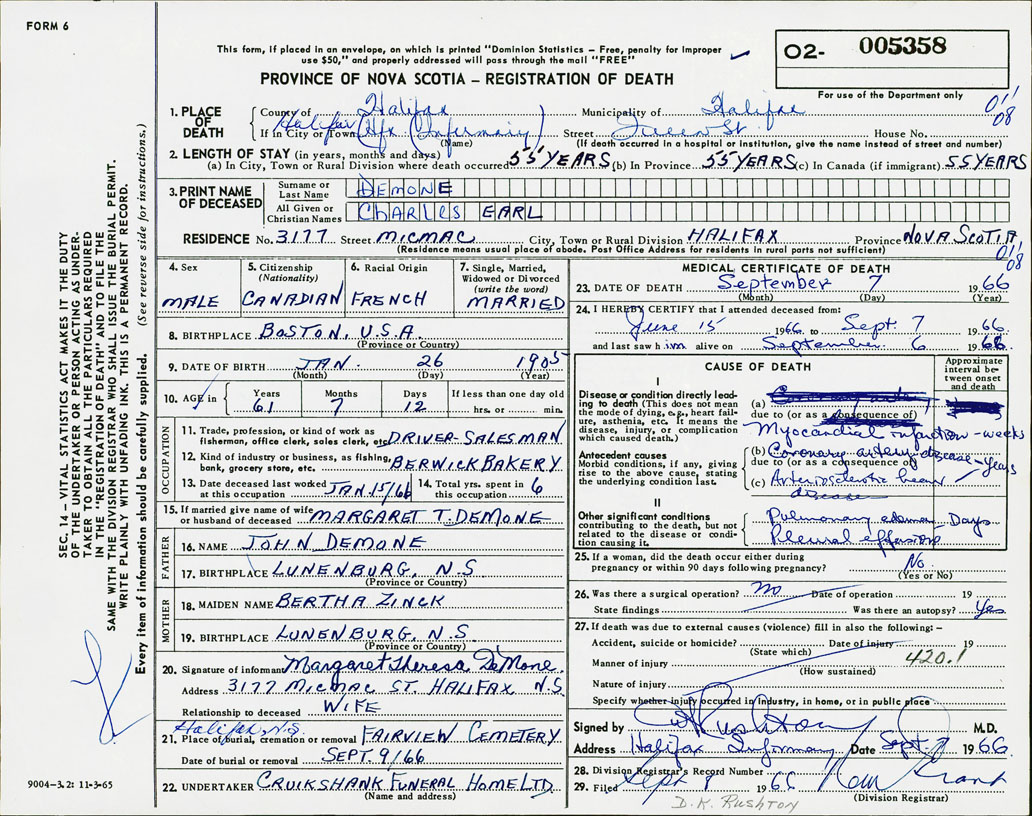 FORM 6
This form, if placed in an envelope, on which is printed "Dominion Statistics – Free, penalty for improper
use $50," and properly addressed will pass through the mail "FREE"
O2- 005358
PROVINCE OF NOVA SCOTIA – REGISTRATION OF DEATH
For use of the Department only
1. PLACE OF DEATH
County of Halifax Municipality of Halifax
If in City or Town Halifax (Hfx Infirmary) Street Queen St. House No.
(Name) (If death occurred in a hospital or institution, give the name instead of street and number)
08
2. LENGTH OF STAY (in years, months and days)
(a) In City, Town or Rural Division where death occurred 55 YEARS (b) In Province 55 YEARS (c) In Canada (if immigrant) 55 YEARS
3. PRINT NAME OF DECEASED
Surname or Last Name DEMONE
All Given or Christian Names CHARLES EARL
RESIDENCE No. 3177 Street MICMAC City, Town or Rural Division HALIFAX Province NOVA SCOTIA
(Residence means usual place of abode. Post Office Address for residents in rural parts not sufficient)
08
4. Sex MALE
5. Citizenship (Nationality) CANADIAN
6. Racial Origin FRENCH
7. Single, Married, Widowed or Divorced (write the word) MARRIED
8. BIRTHPLACE BOSTON, U.S.A.
(Province or Country)
9. DATE OF BIRTH JAN. 26 1905
(Month) (Day) (Year)
10. AGE in Years 61 Months 7 Days 12 If less than one day old hrs. or min.
OCCUPATION
11. Trade, profession, or kind of work as
fisherman, office clerk, sales clerk, etc. DRIVER-SALESMAN
12. Kind of industry or business, as fishing,
bank, grocery store, etc. BERWICK BAKERY
13. Date deceased last worked at this occupation JAN 15/66 14. Total yrs. spent in this occupation 6
15. If married give name of wife
or husband of deceased MARGARET T. DEMONE
FATHER
16. NAME JOHN DEMONE
17. BIRTHPLACE LUNENBURG, N.S.
(Province or Country)
MOTHER
18. MAIDEN NAME BERTHA ZINCK
19. BIRTHPLACE LUNENBURG, N.S.
(Province or Country)
20. Signature of informant Margaret Theresa DeMone.
Address 3177 MICMAC ST. HALIFAX N.S.
Relationship to deceased WIFE
Halifax, N.S.
21. Place of burial, cremation or removal FAIRVIEW CEMETERY
Date of burial or removal SEPT. 9/66
22. UNDERTAKER CRUIKSHANK FUNERAL HOME LTD.
(Name and address)
MEDICAL CERTIFICATE OF DEATH
23. DATE OF DEATH September 7 1966
(Month) (Day) (Year)
24. I HEREBY CERTIFY that I attended deceased from:
June 15 1966 to Sept. 7 1966
and last saw him alive on September 6 1966
CAUSE OF DEATH
Approximate interval between onset and death
I
Disease or condition directly leading to death (This does not mean the mode of dying, e.g., heart failure, asthenia, etc. It means the disease, injury, or complication which caused death.)
(a)
due to (or as a consequence of)
Myocardial infarction - weeks
Antecedent causes
Morbid conditions, if any, giving rise to the above cause, stating the underlying condition last.
(b) Coronary artery disease - years
due to (or as a consequence of)
(c) Arteriosclerotic heart
disease
II
Other significant conditions
contributing to the death, but not related to the disease or condition causing it.
Pulmonary edema Days
Pleural effusions
25. If a woman, did the death occur either during
pregnancy or within 90 days following pregnancy? No
(Yes or No)
26. Was there a surgical operation? no Date of operation 19
State findings Was there an autopsy? Yes
27. If death was due to external causes (violence) fill in also the following: –
Accident, suicide or homicide? Date of injury 19
(State which)
Manner of injury 420.1
(How sustained)
Nature of injury
Specify whether injury occurred in industry, in home, or in public place
Signed by Rushton M.D.
Address Halifax Infirmary Date Sept. 7 1966
28. Division Registrar's Record Number
29. Filed Sept 8 1966 Grant
(Division Registrar)
D. K. RUSHTON
SEC. 14 – VITAL STATISTICS ACT MAKES IT THE DUTY
OF THE UNDERTAKER OR PERSON ACTING AS UNDER-
TAKER TO OBTAIN ALL THE PARTICULARS REQUIRED
IN THE "REGISTRATION OF DEATH" AND TO FILE THE
SAME WITH THE DIVISION REGISTRAR WHO SHALL ISSUE THE BURIAL PERMIT.
WRITE PLAINLY WITH UNFADING INK. THIS IS A PERMANENT RECORD.
Every item of information should be carefully supplied. (See reverse side for instructions.)
9004-3.2: 11-3-65